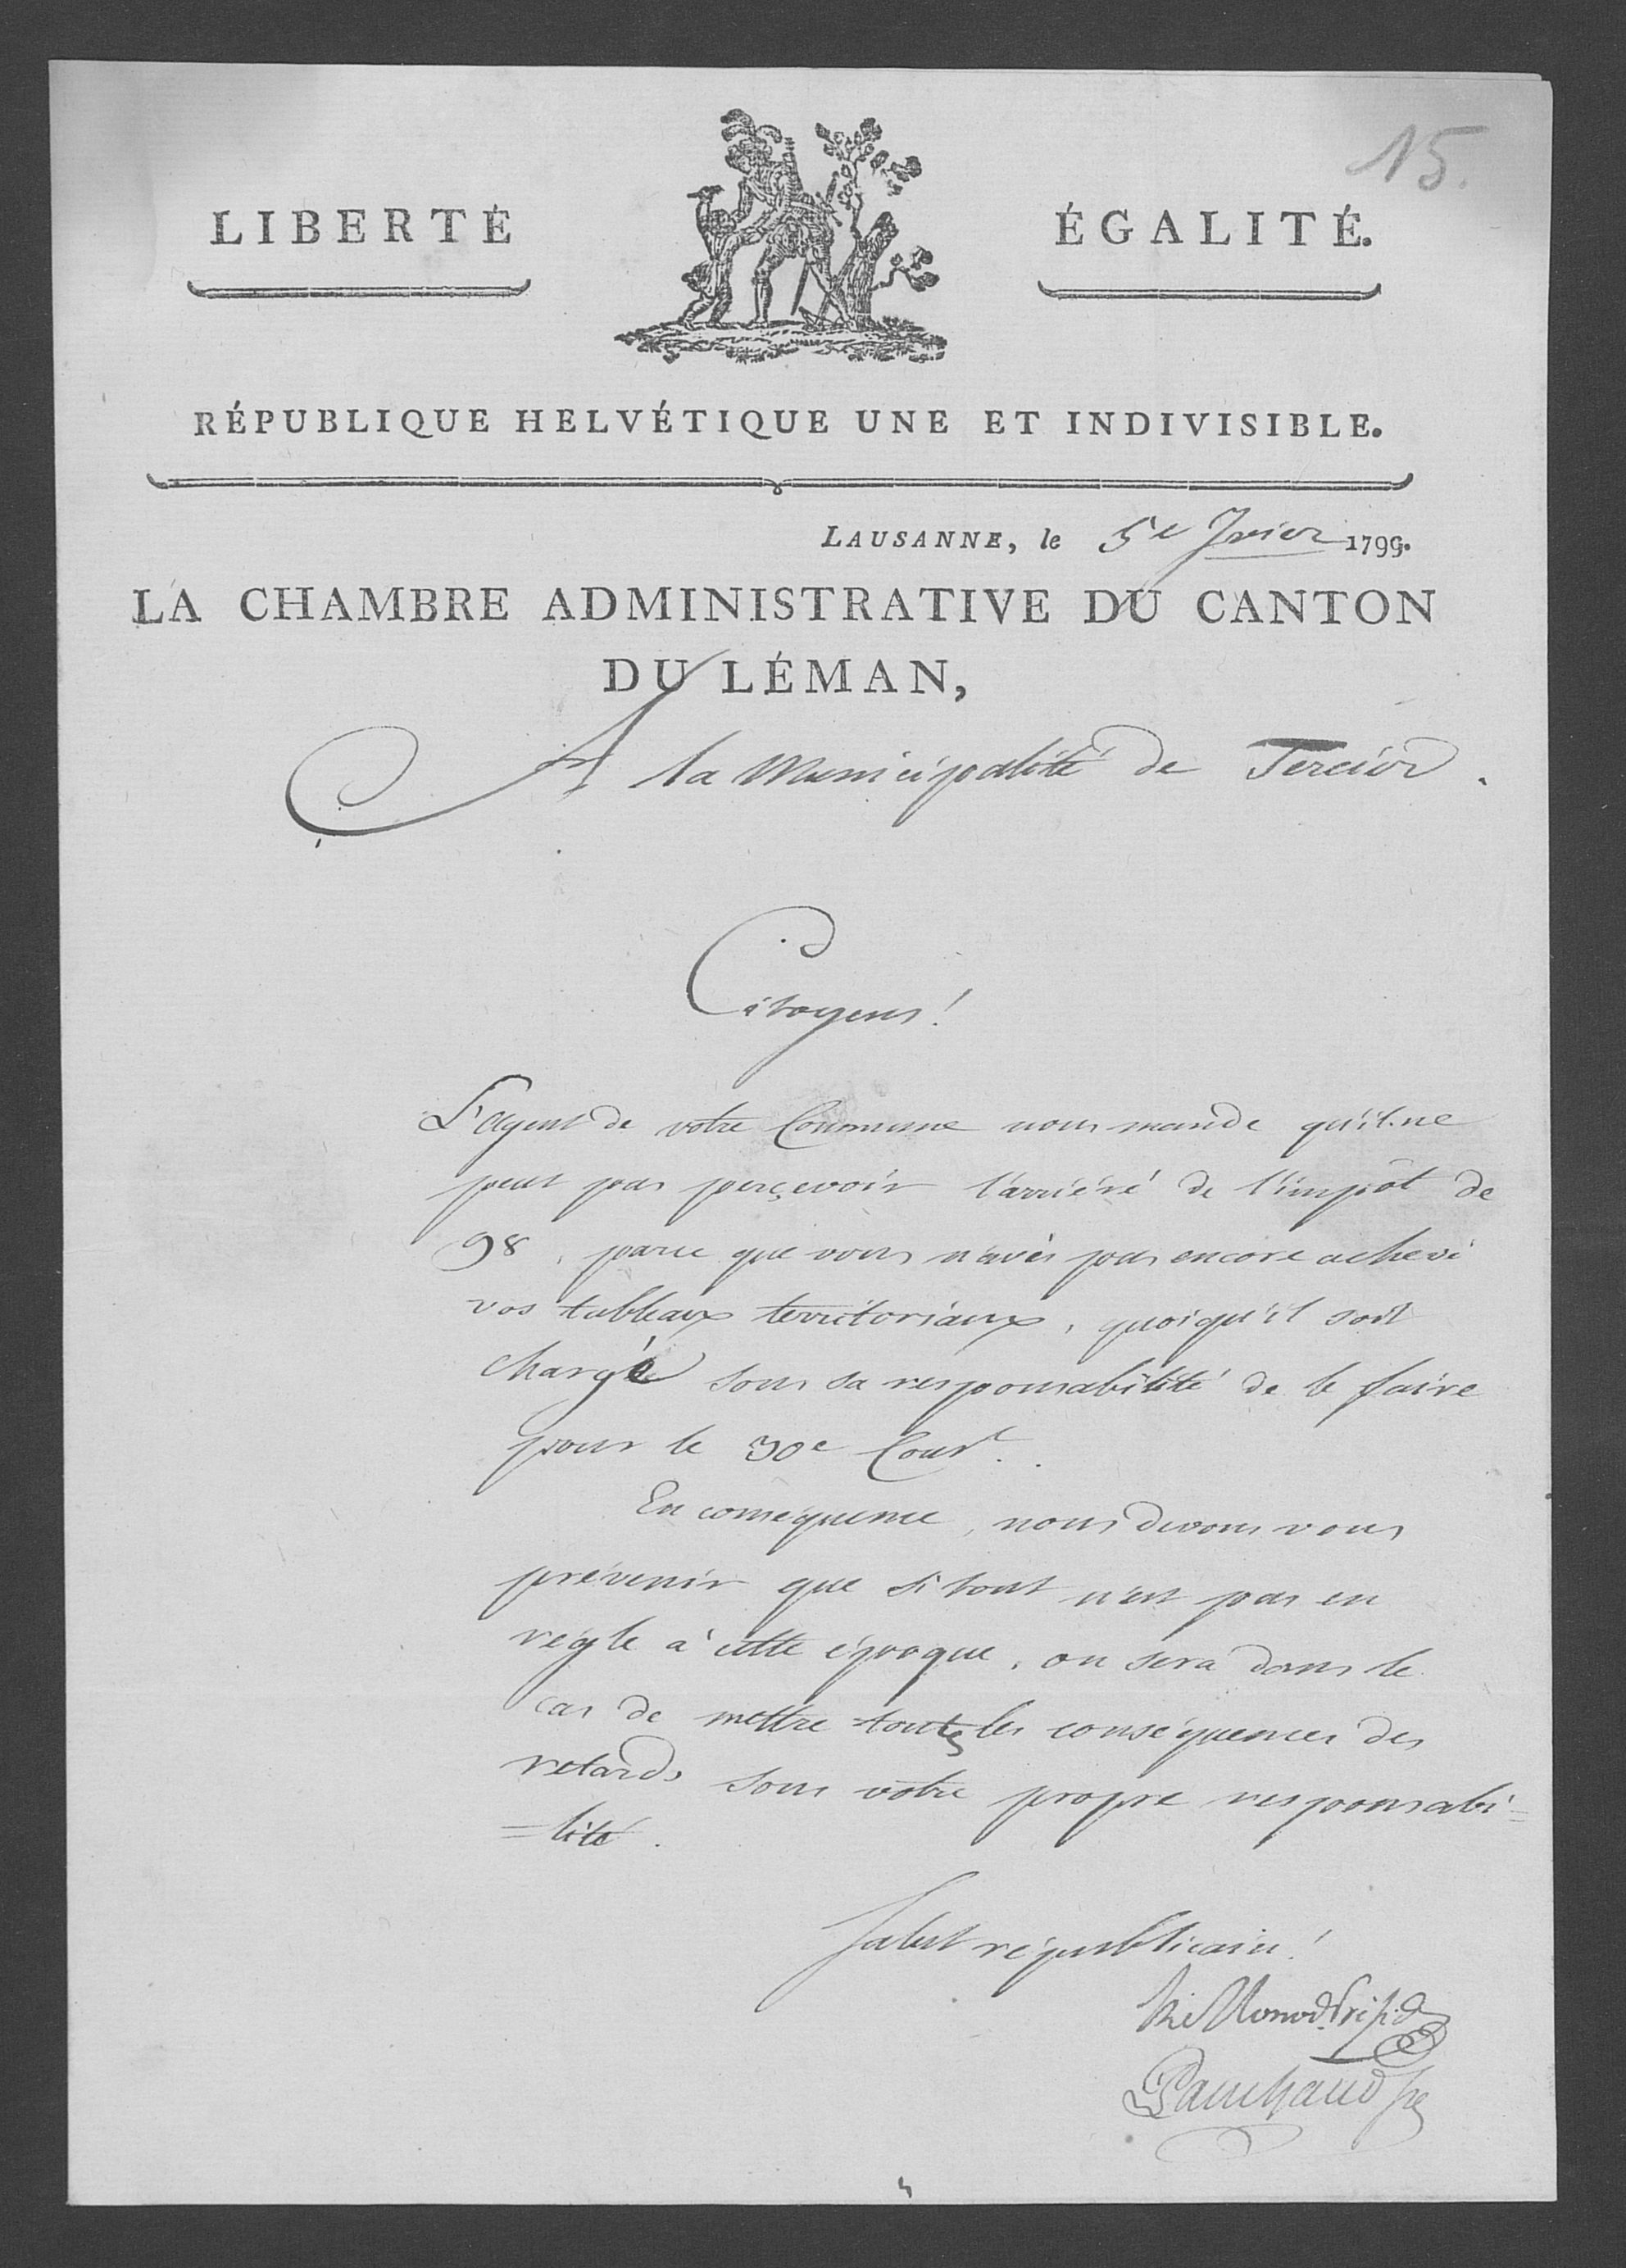 15.
LIBERTÉ
ÉGALITÉ.
RÉPUBLIQUE HELVÉTIQUE UNE ET INDIVISIBLE.
LAUSANNE, le 5e Jvier 1799.
LA CHAMBRE ADMINISTRATIVE DU CANTON
DU LÉMAN,
A la Municipalité de
Citoyens!
L'agent de votre Commune nous mande qu'il ne
peut pas perçevoir l'arriéré de l'impôt de
98, parce que vous n'avés pas encore achevé
vos tableaux territoriaux, quoiqu'il soit
chargé sous sa responsabilité de le faire
pour le 30e Court.
En conséquence, nous devons vous
prévenir que si tout n'est pas en
régle à cette époque, on sera dans le
cas de mettre toutes les conséquences des
retards sous votre propre responsabi=
=lité.
Salut républicain!
Monod Présid
Panchaud